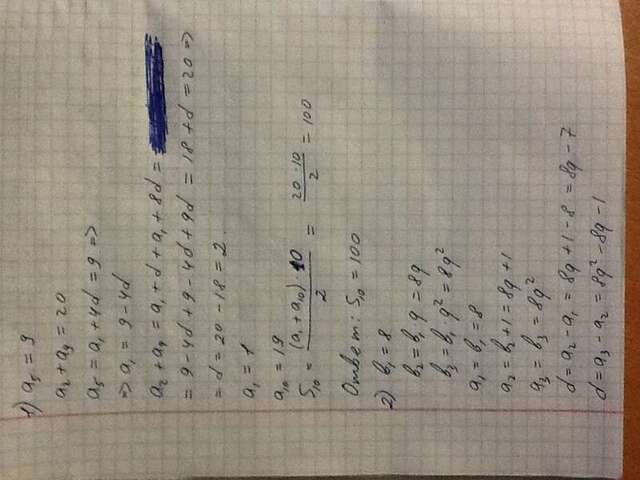 1) a₅ = 9
a₂ + a₉ = 20
a₅ = a₁ + 4d = 9 =>
=> a₁ = 9 - 4d
a₂ + a₉ = a₁ + d + a₁ + 8d =
= 9 - 4d + 9 - 4d + 9d = 18 + d = 20 =>
= d = 20 - 18 = 2
a₁ = 1
a₁₀ = 19
S₁₀ = (a₁ + a₁₀) · 10 / 2 = 20 · 10 / 2 = 100
Ответ: S₁₀ = 100
2) b₁ = 8
b₂ = b₁ q = 8q
b₃ = b₁ q² = 8q²
a₁ = b₁ = 8
a₂ = b₂ + 1 = 8q + 1
a₃ = b₃ = 8q²
d = a₂ - a₁ = 8q + 1 - 8 = 8q - 7
d = a₃ - a₂ = 8q² - 8q - 1